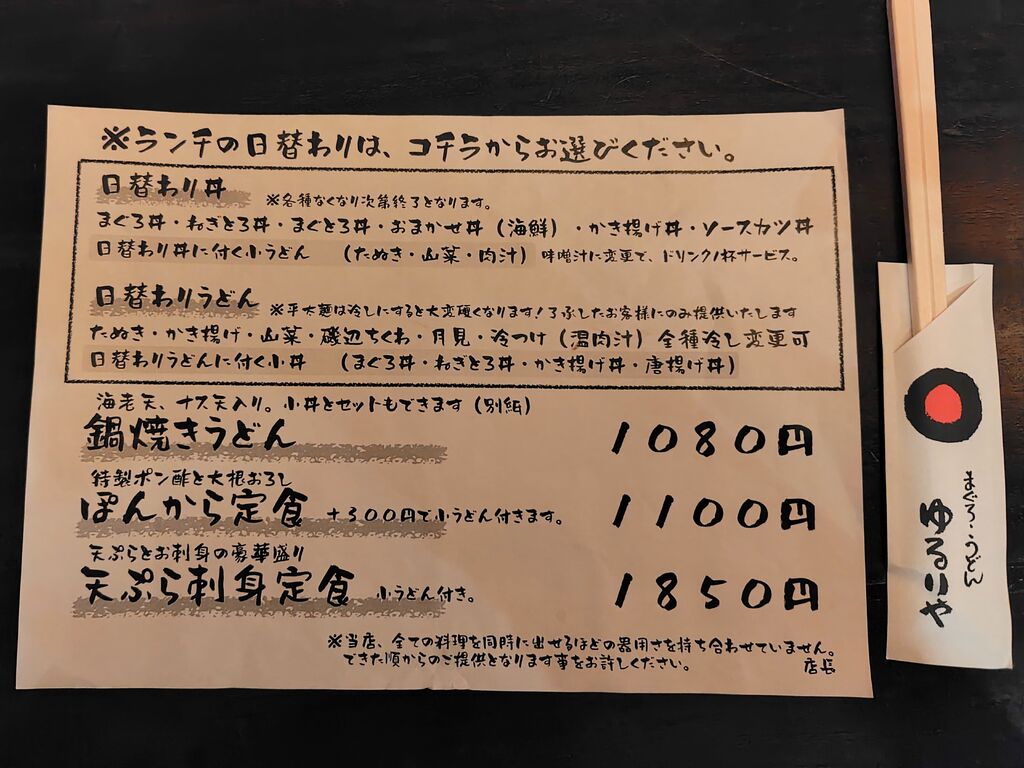 ※ランチの日替わりは、コチラからお選びください。
日替わり丼 ※各種なくなり次第終了となります。
まぐろ丼・ねぎとろ丼・まぐとろ丼・おまかせ丼（海鮮）・かき揚げ丼・ソースカツ丼
日替わり丼に付く小うどん （たぬき・山菜・肉汁） 味噌汁に変更で、ドリンク1杯サービス。
日替わりうどん ※平太麺は冷しにすると大変硬くなります！了承したお客様にのみ提供いたします
たぬき・かき揚げ・山菜・磯辺ちくわ・月見・冷つけ（温肉汁）全種冷し変更可
日替わりうどんに付く小丼 （まぐろ丼・ねぎとろ丼・かき揚げ丼・唐揚げ丼）
海老天、ナス天入り。小丼とセットもできます（別紙）
鍋焼きうどん 1080円
特製ポン酢と大根おろし
ぽんから定食 +300円で小うどん付きます。 1100円
天ぷらとお刺身の豪華盛り
天ぷら刺身定食 小うどん付き。 1850円
※当店、全ての料理を同時に出せるほどの器用さを持ち合わせていません。
できた順からのご提供となります事をお許しください。 店長
まぐろ・うどん
ゆるりや